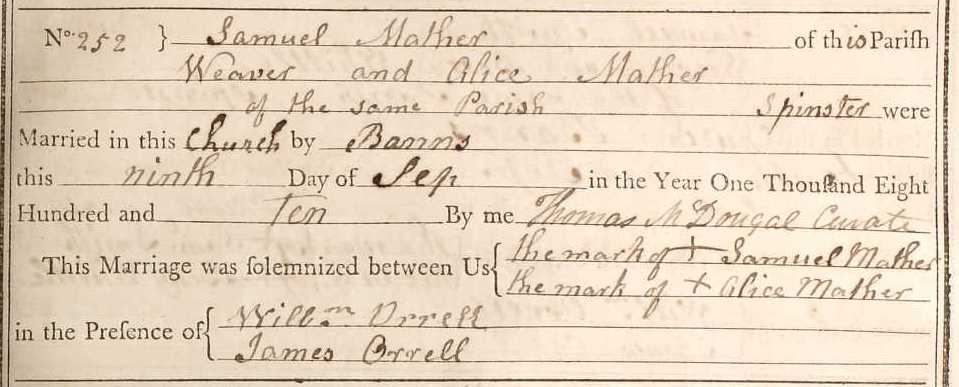 No. 252 } Samuel Mather of this Pariſh
Weaver and Alice Mather
of the same Parish Spinster were
Married in this Church by Banns
this ninth Day of Sep in the Year One Thouſand Eight
Hundred and Ten By me Thomas McDougal Curate
This Marriage was ſolemnized between Us { the mark of + Samuel Mather
the mark of + Alice Mather
in the Preſence of { Willm Orrell
James Orrell